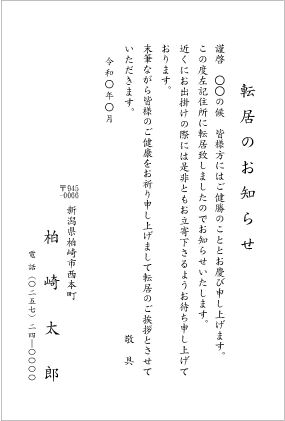 転居のお知らせ
謹啓　〇〇の候　皆様方にはご健勝のこととお慶び申し上げます。
この度左記住所に転居致しましたのでお知らせいたします。
近くにお出掛けの際には是非ともお立寄下さるようお待ち申し上げて
おります。
末筆ながら皆様のご健康をお祈り申し上げまして転居のご挨拶とさせて
いただきます。
敬具
令和〇年〇月
〒945-0066
新潟県柏崎市西本町
柏崎太郎
電話（〇二五七）二四―〇〇〇〇